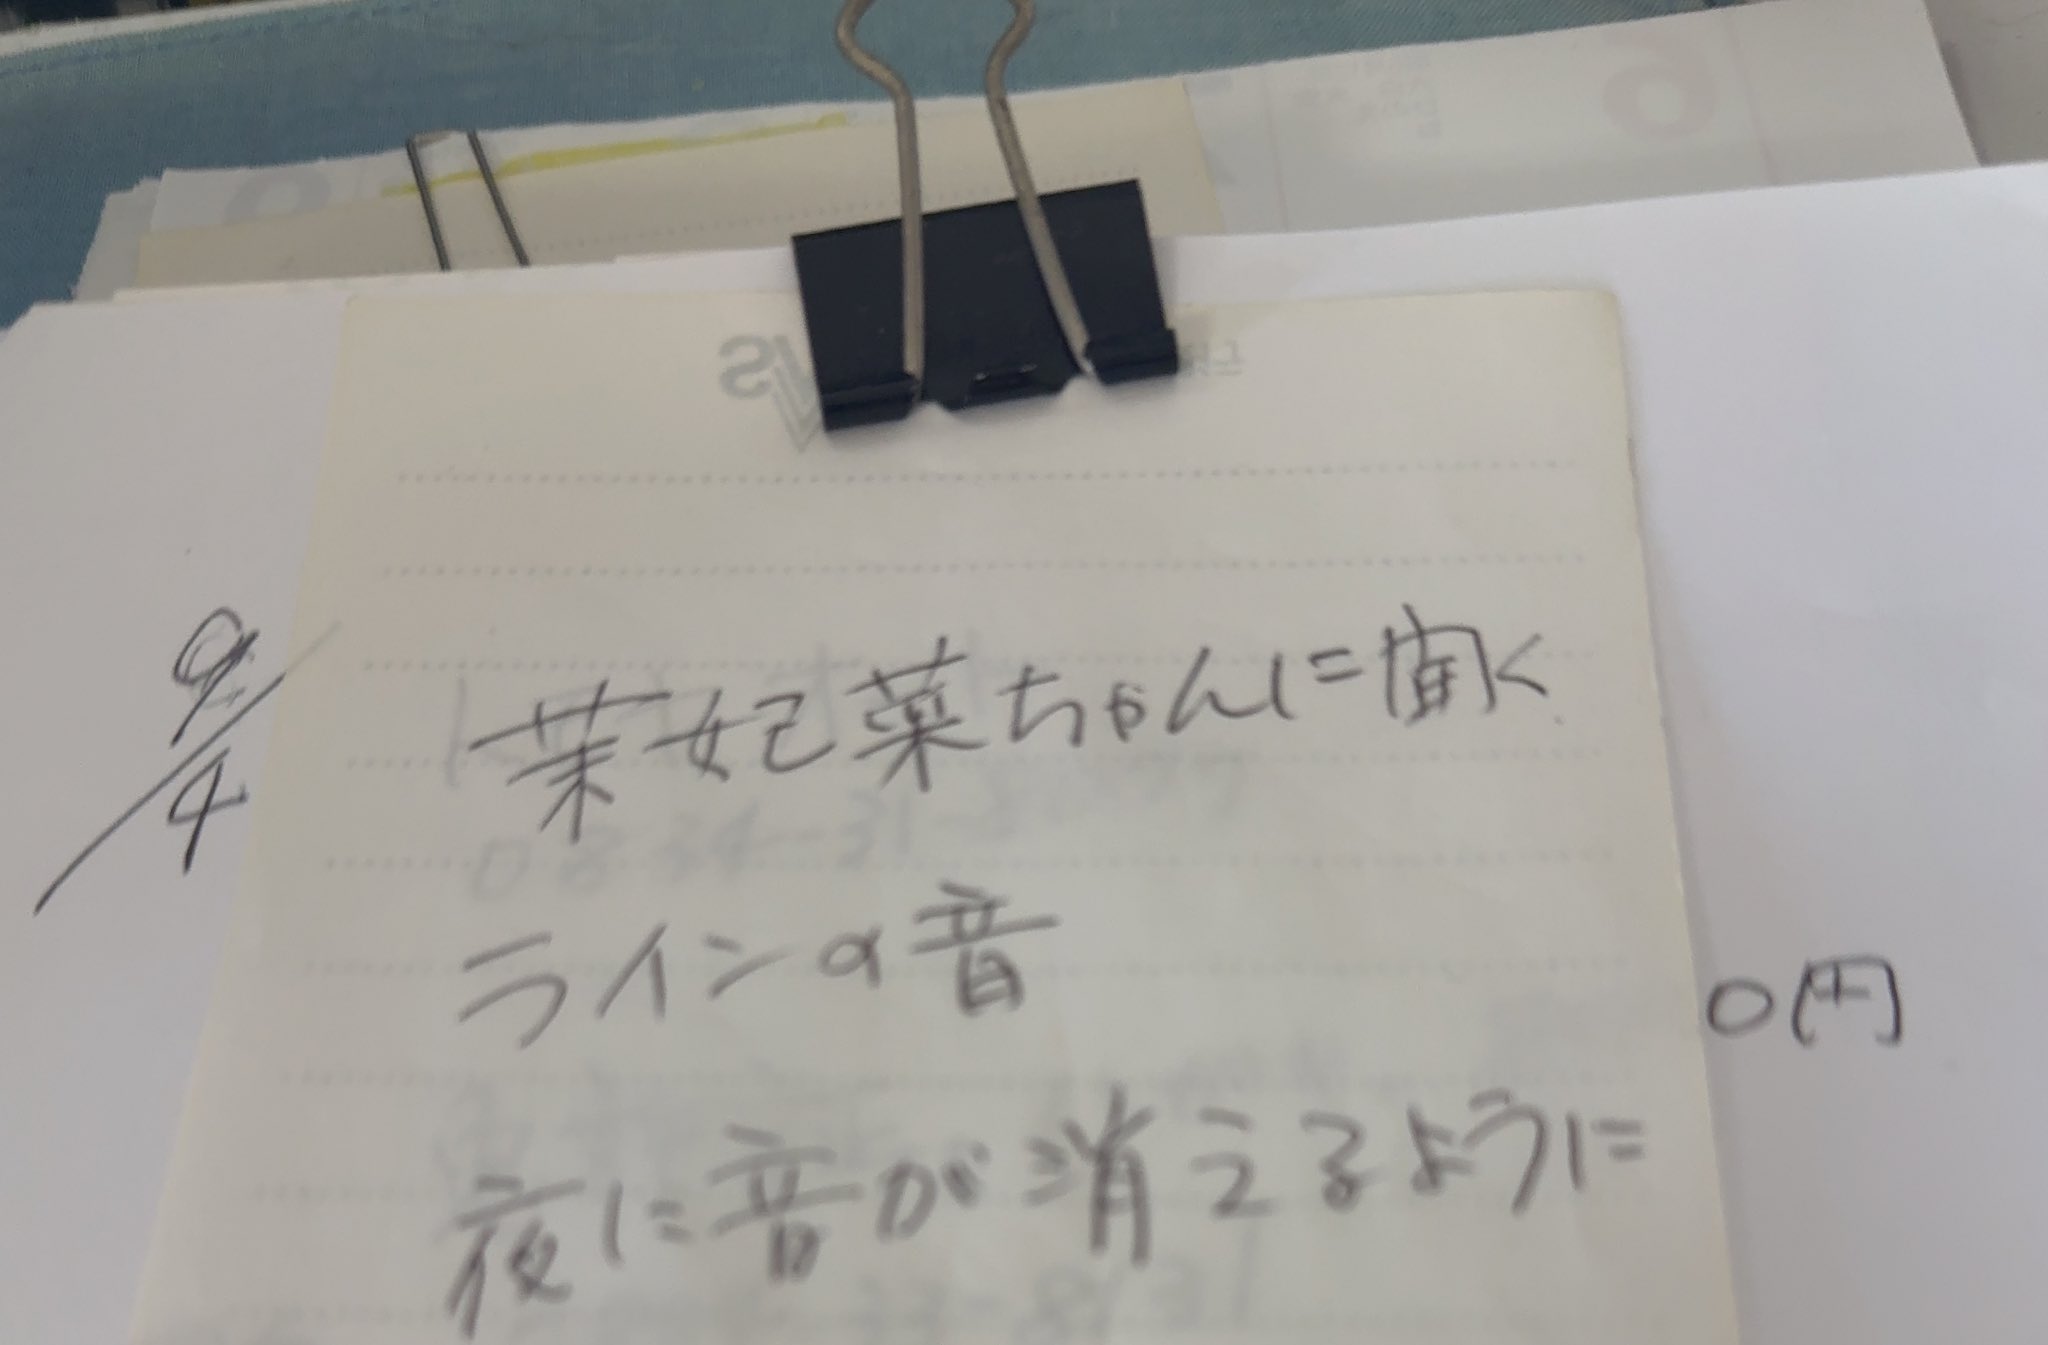 9/4
茉妃菜ちゃんに聞く
ラインの音
0円
夜に音が消えるように